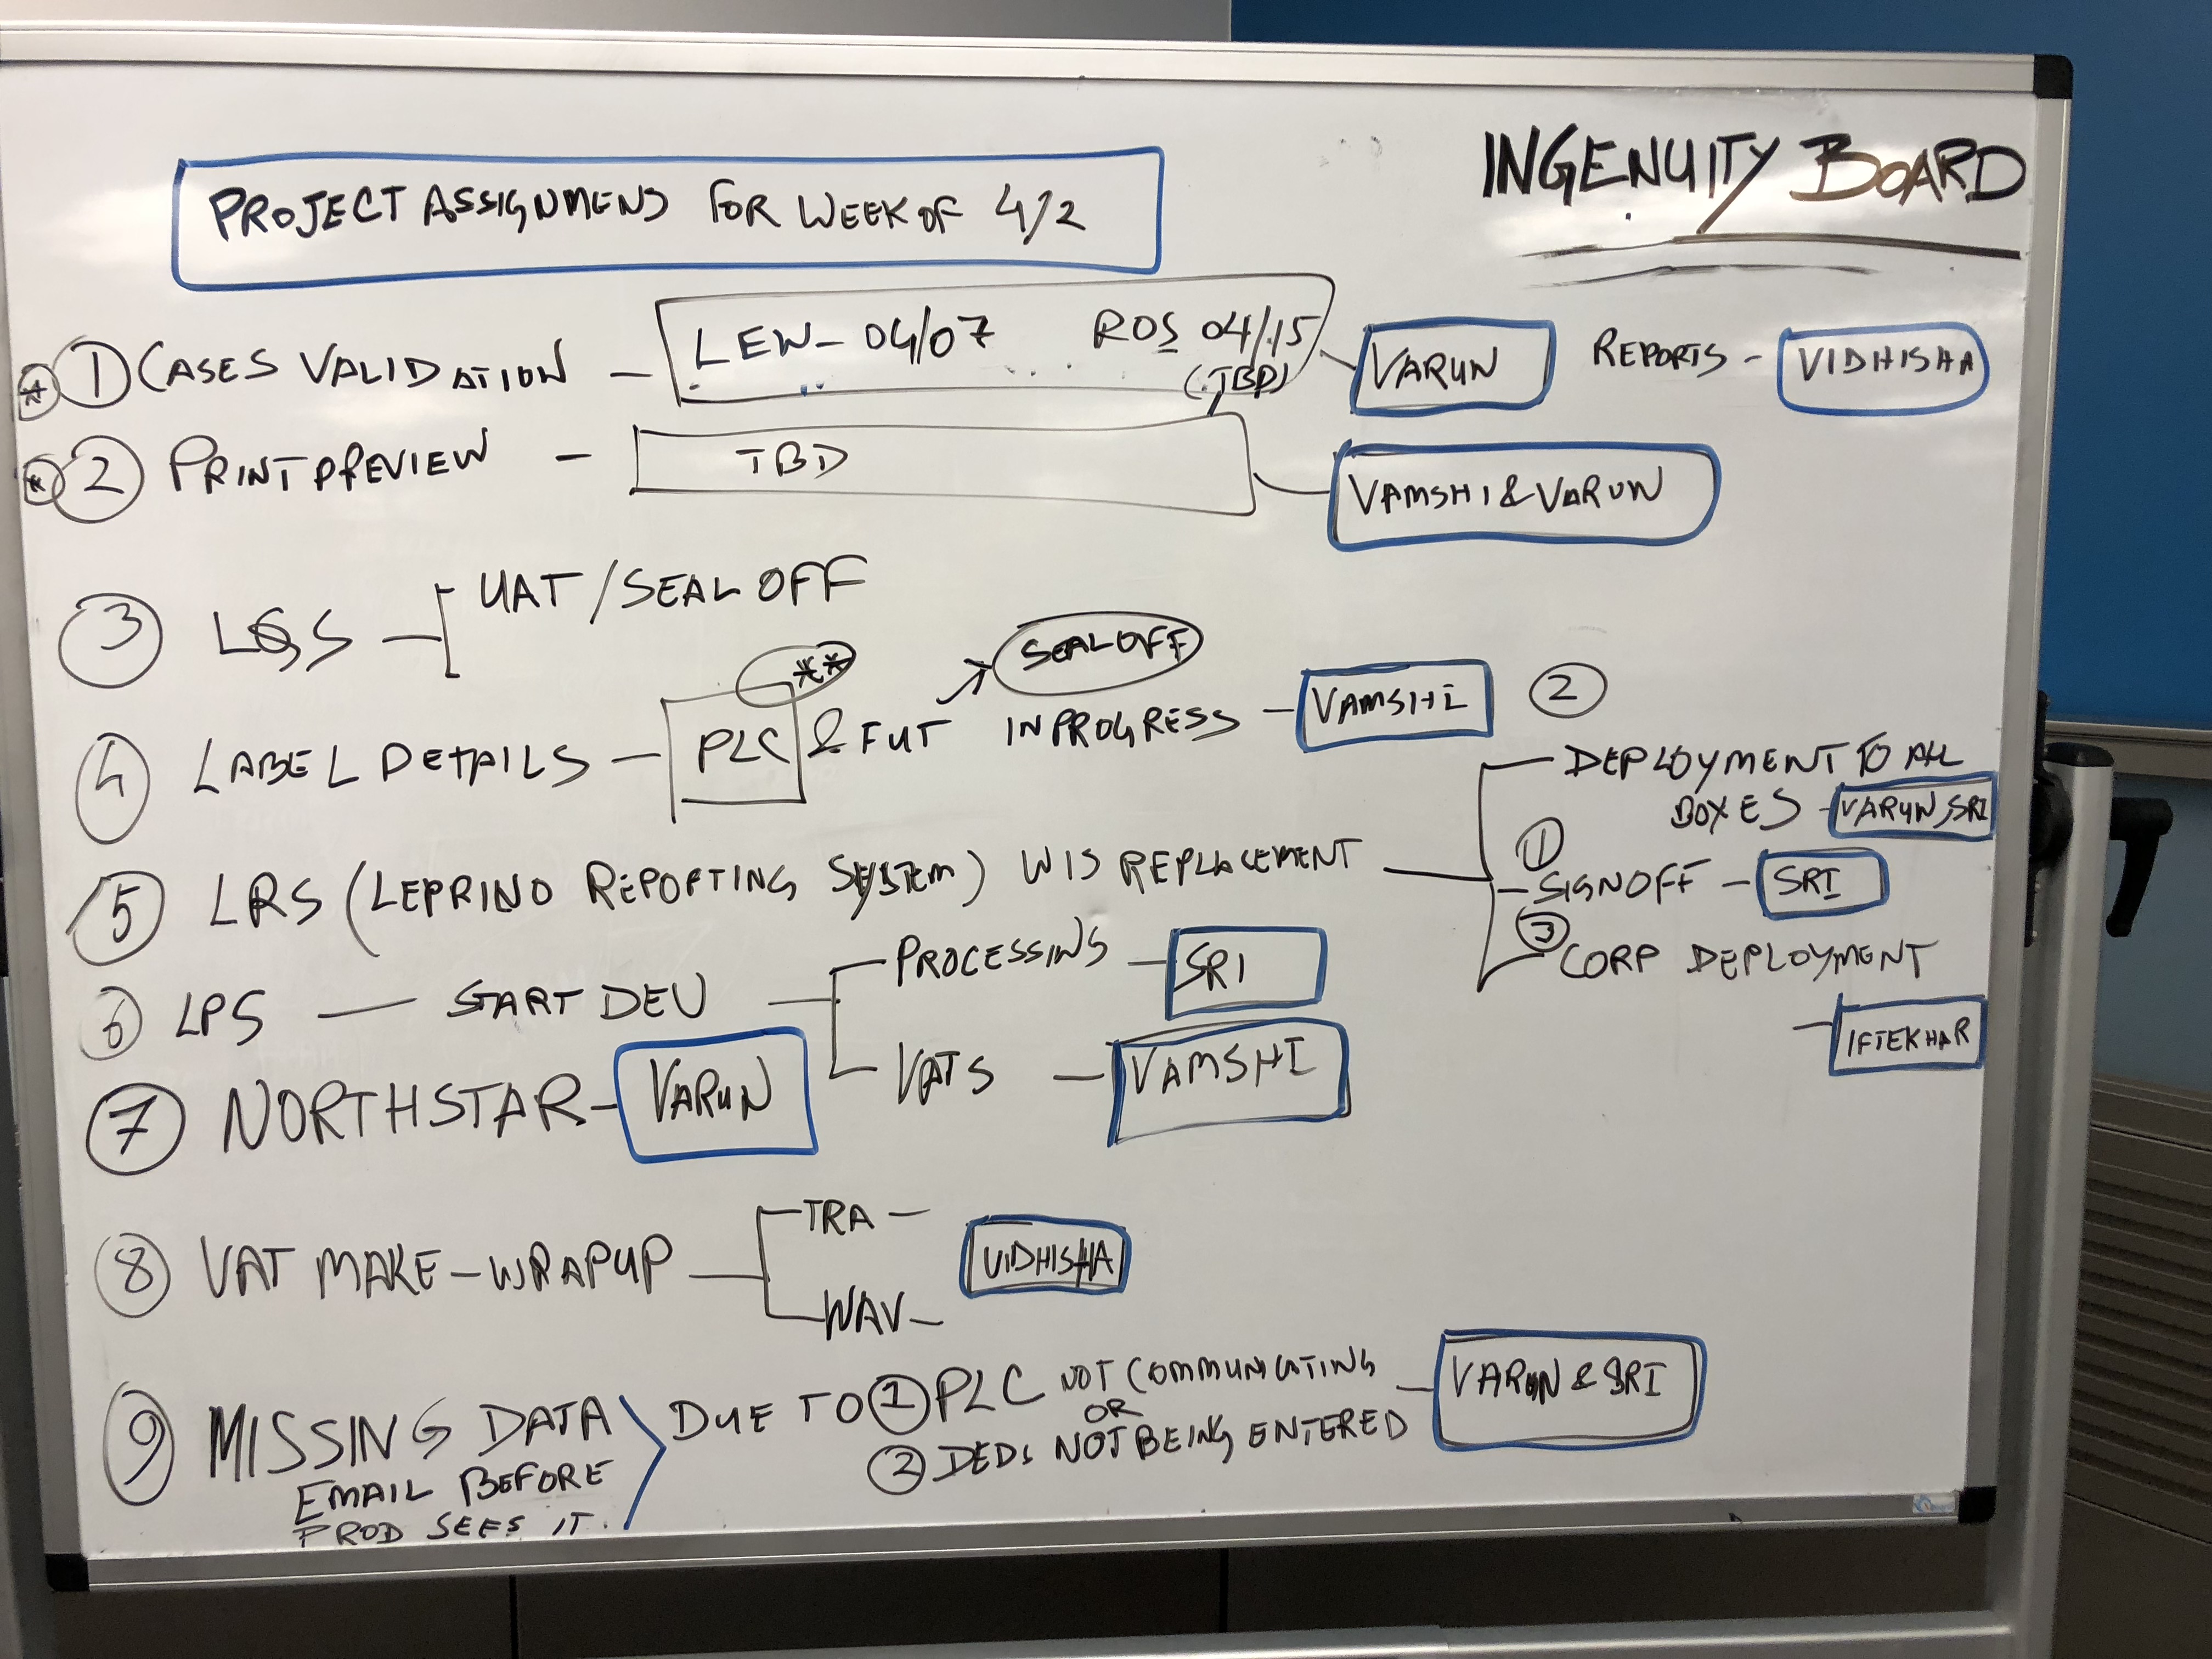 INGENUITY BOARD
PROJECT ASSIGNMENS FOR WEEK OF 4/2
* 1 CASES VALIDATION — LEW - 04/07 ROS 04/15 (TBD) VARUN REPORTS - VIDHISHA
* 2 PRINT PREVIEW — TBD VAMSHI & VARUN
3 LQS — UAT / SEAL OFF
4 LABEL DETAILS — PLC ** & FUT IN PROGRESS — VAMSHI
SEAL OFF
5 LRS (LEPRINO REPORTING SYSTEM) WIS REPLACEMENT
2 DEPLOYMENT TO ALL
BOXES - VARUN, SRI
1 SIGNOFF - SRI
3 CORP DEPLOYMENT
- IFTEKHAR
6 LPS — START DEV
PROCESSING — SRI
VATS — VAMSHI
7 NORTHSTAR - VARUN
8 VAT MAKE - WRAPUP
TRA -
VIDHISHA
WAV -
9 MISSING DATA
EMAIL BEFORE
PROD SEES IT.
DUE TO 1 PLC NOT COMMUNICATING
OR
2 DEDS NOT BEING ENTERED
- VARUN & SRI